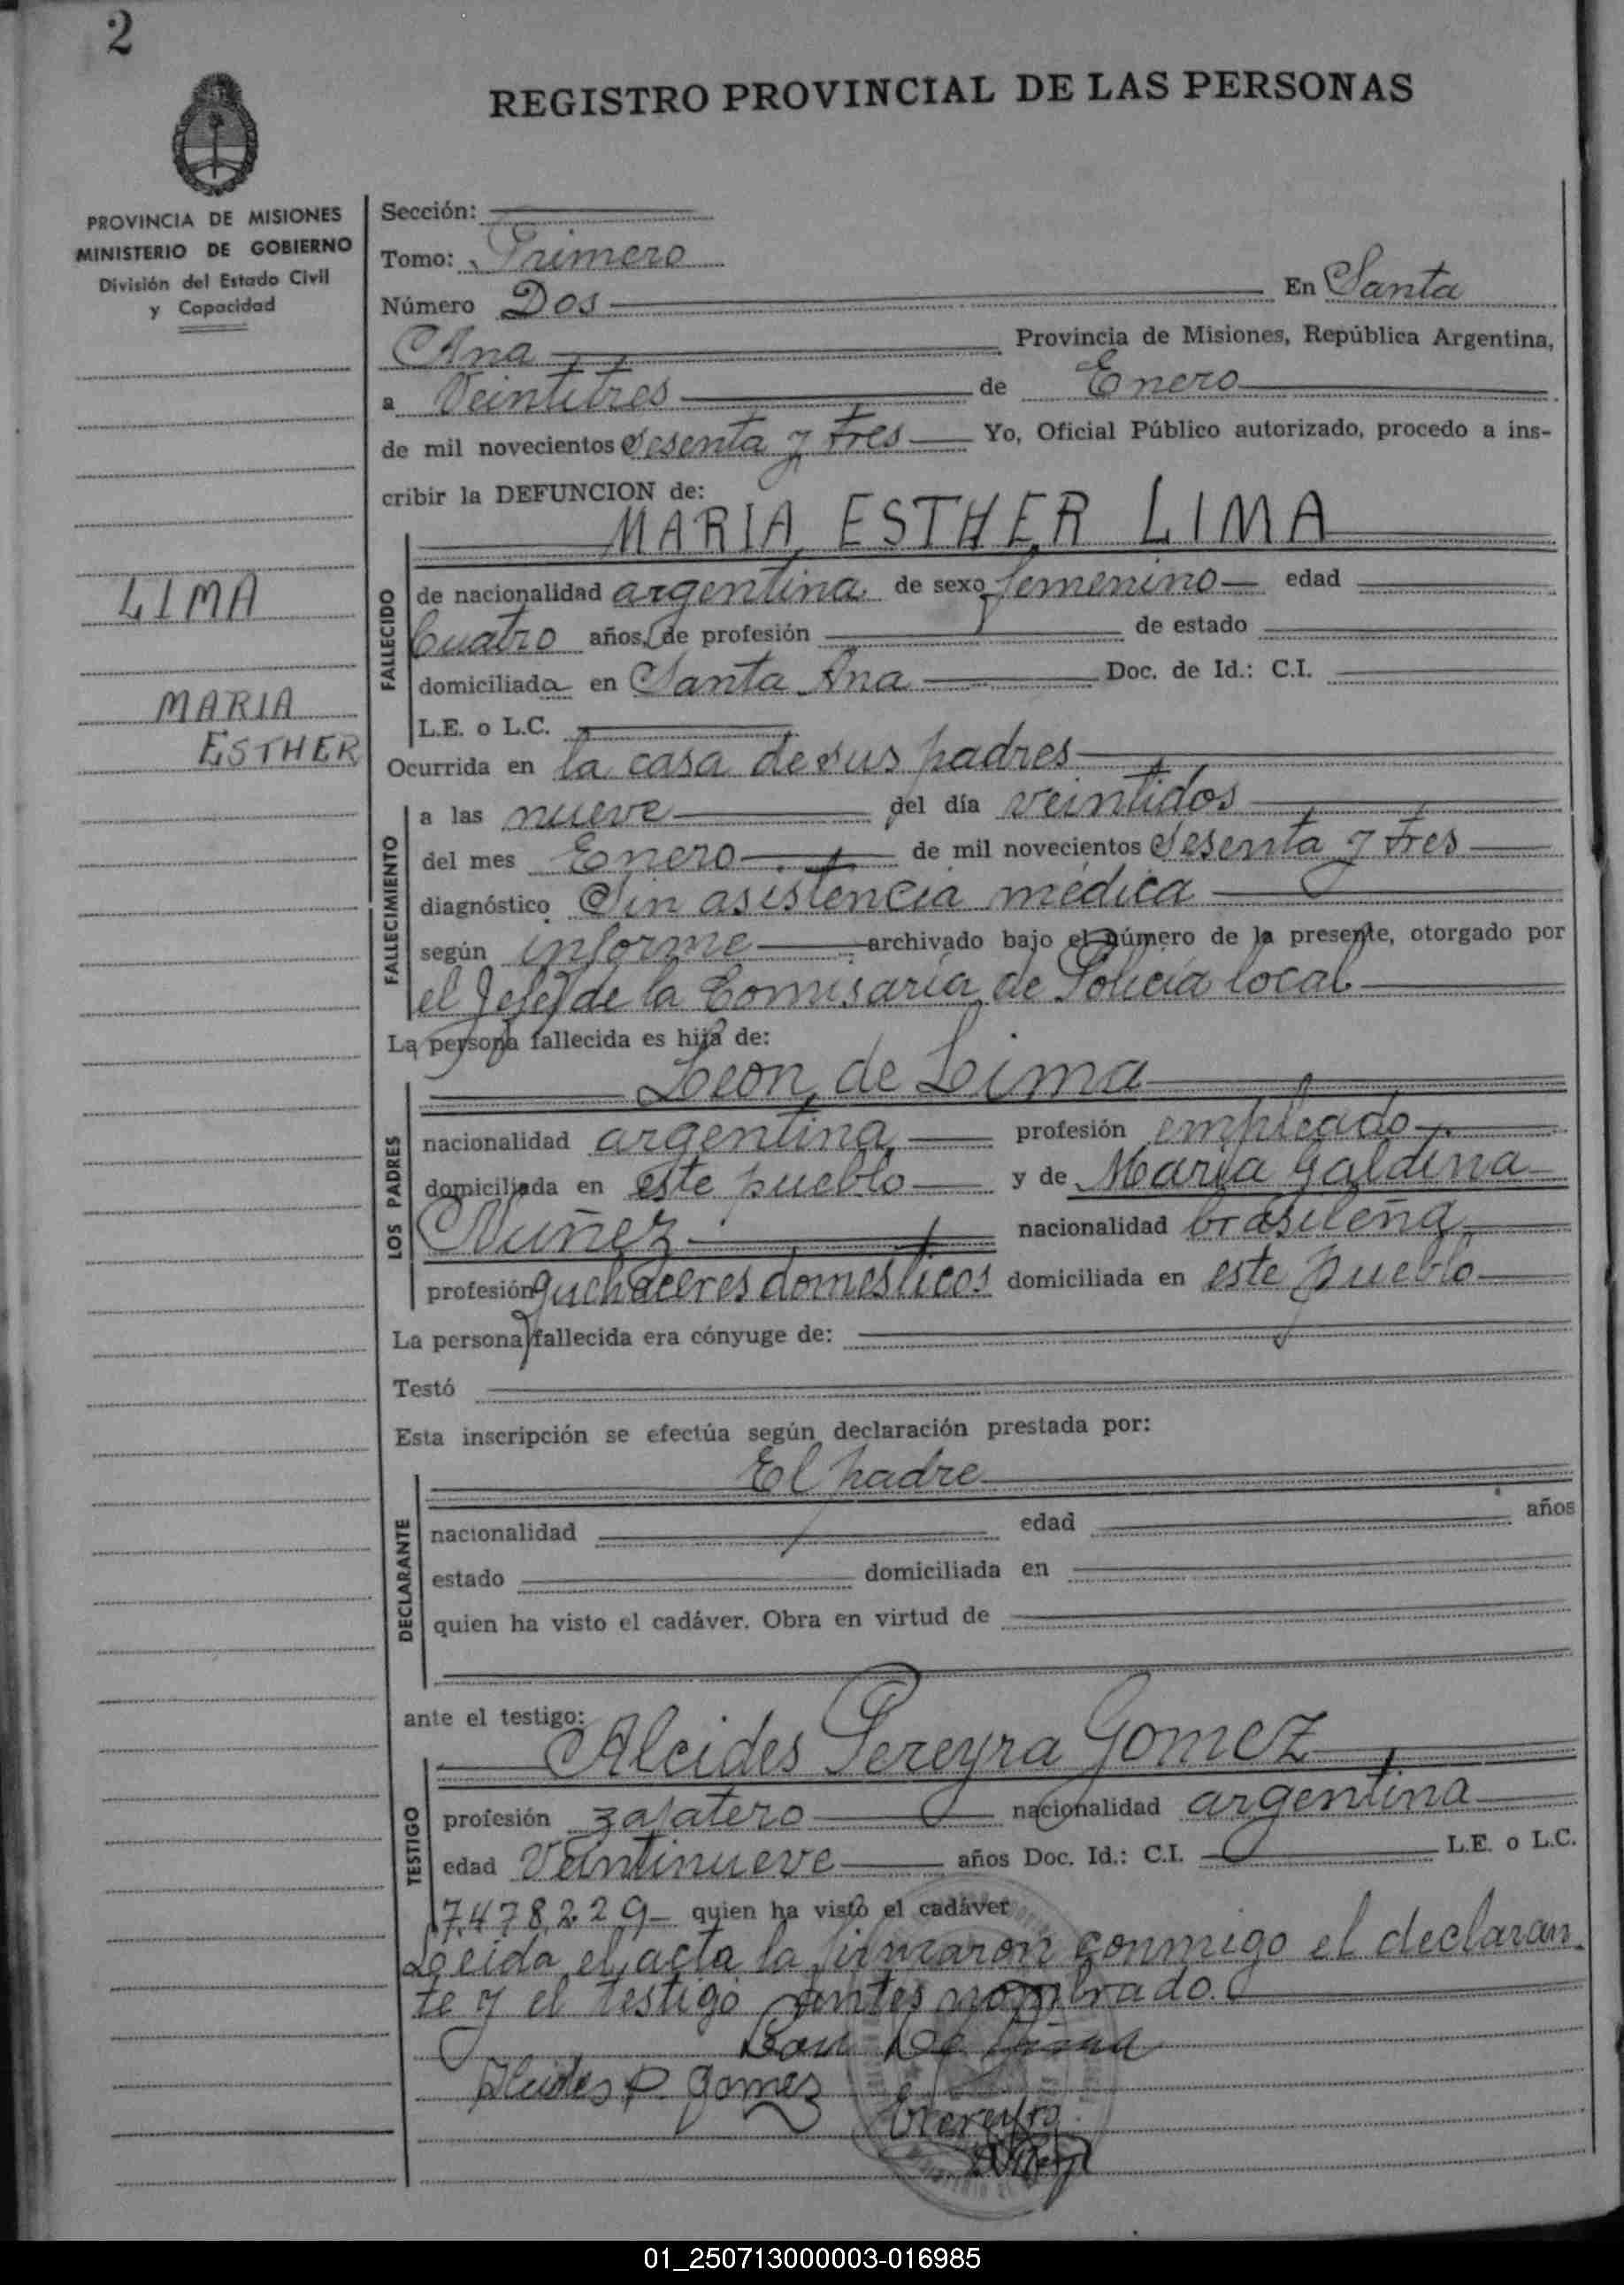 2
REGISTRO PROVINCIAL DE LAS PERSONAS
PROVINCIA DE MISIONES
MINISTERIO DE GOBIERNO
División del Estado Civil
y Capacidad
LIMA
MARIA
ESTHER
Sección:
Tomo: Primero
Número Dos En Santa
Ana Provincia de Misiones, República Argentina,
a Veintitres de Enero
de mil novecientos sesenta y tres Yo, Oficial Público autorizado, procedo a ins-
cribir la DEFUNCION de:
MARIA ESTHER LIMA
FALLECIDO
de nacionalidad argentina de sexo femenino edad
Cuatro años, de profesión de estado
domiciliada en Santa Ana Doc. de Id.: C.I.
L.E. o L.C.
Ocurrida en la casa de sus padres
FALLECIMIENTO
a las nueve del día veintidos
del mes Enero de mil novecientos sesenta y tres
diagnóstico Sin asistencia médica
según informe archivado bajo el número de la presente, otorgado por
el Jefe de la Comisaría de Policía local
La persona fallecida es hija de:
Leon de Lima
LOS PADRES
nacionalidad argentina profesión empleado
domiciliada en este pueblo y de Maria Galdina
Nuñez nacionalidad brasileña
profesión quehaceres domesticos domiciliada en este pueblo
La persona fallecida era cónyuge de:
Testó
Esta inscripción se efectúa según declaración prestada por:
El padre
DECLARANTE
nacionalidad edad años
estado domiciliada en
quien ha visto el cadáver. Obra en virtud de
ante el testigo:
Alcides Pereyra Gomez
TESTIGO
profesión zapatero nacionalidad argentina
edad Veintinueve años Doc. Id.: C.I. L.E. o L.C.
7.478.229 quien ha visto el cadáver
Leida el acta la firmaron conmigo el declaran
te y el testigo antes nombrado.
Leon De Lima
Alcides P. Gomez
01_250713000003-016985